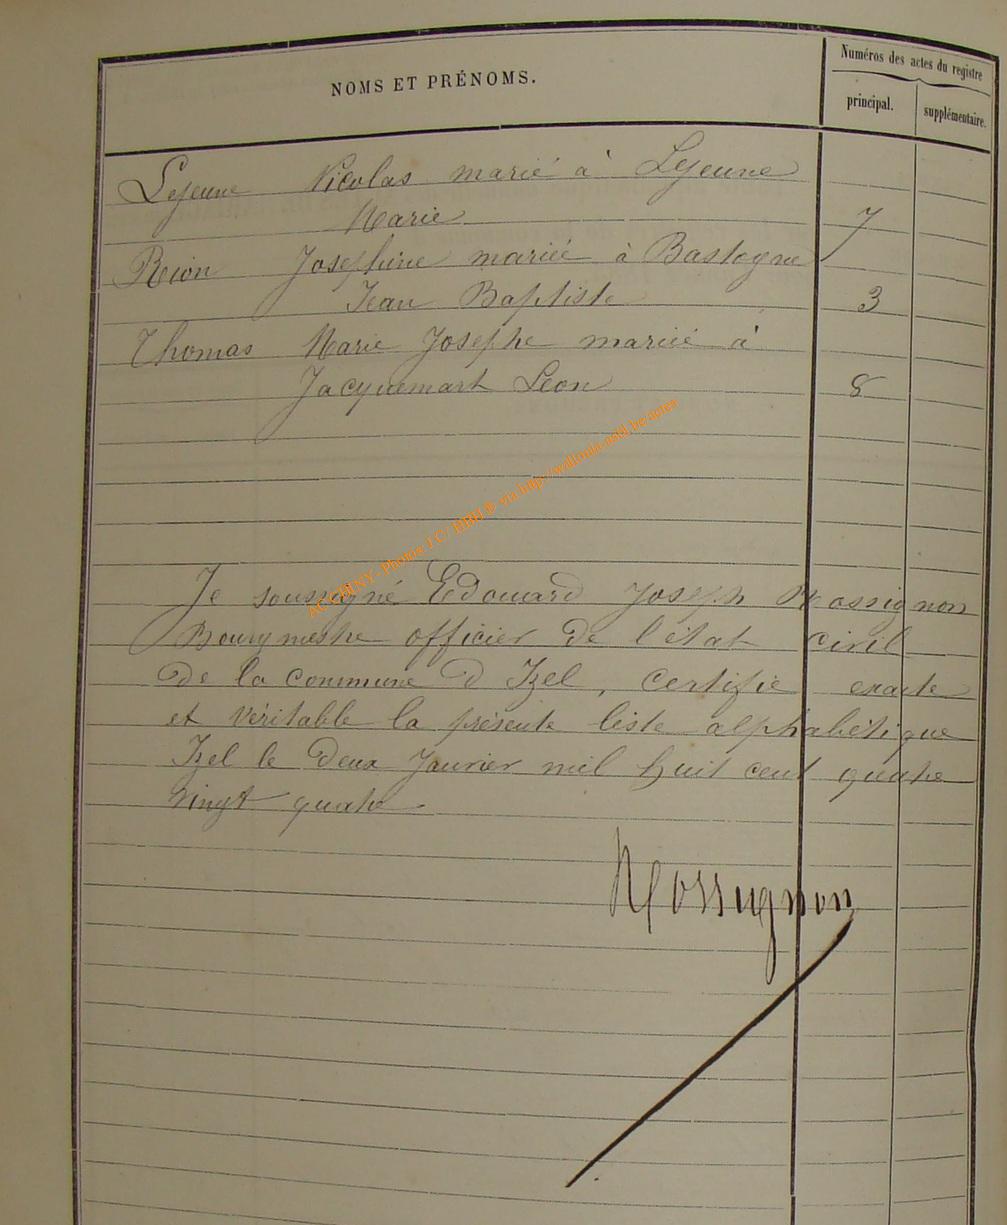 NOMS ET PRÉNOMS.
Numéros des actes du registre
principal.
supplémentaire.
Lejeune Nicolas marié à Lejeune
Marie 7
Rion Joséphine mariée à Bastogne
Jean Baptiste 3
Thomas Marie Josephe mariée à
Jacquemart Leon 8
ACCHINY - Photos J C/ HBH ® via http://wallonia-asbl.be/actes
Je soussigné Edouard Joseph Rossignon
Bourgmestre officier de l'état civil
de la commune d Izel, certifie exacte
et véritable la présente liste alphabétique
Izel le deux Janvier mil huit cent quatre
vingt quatre
Rossignon